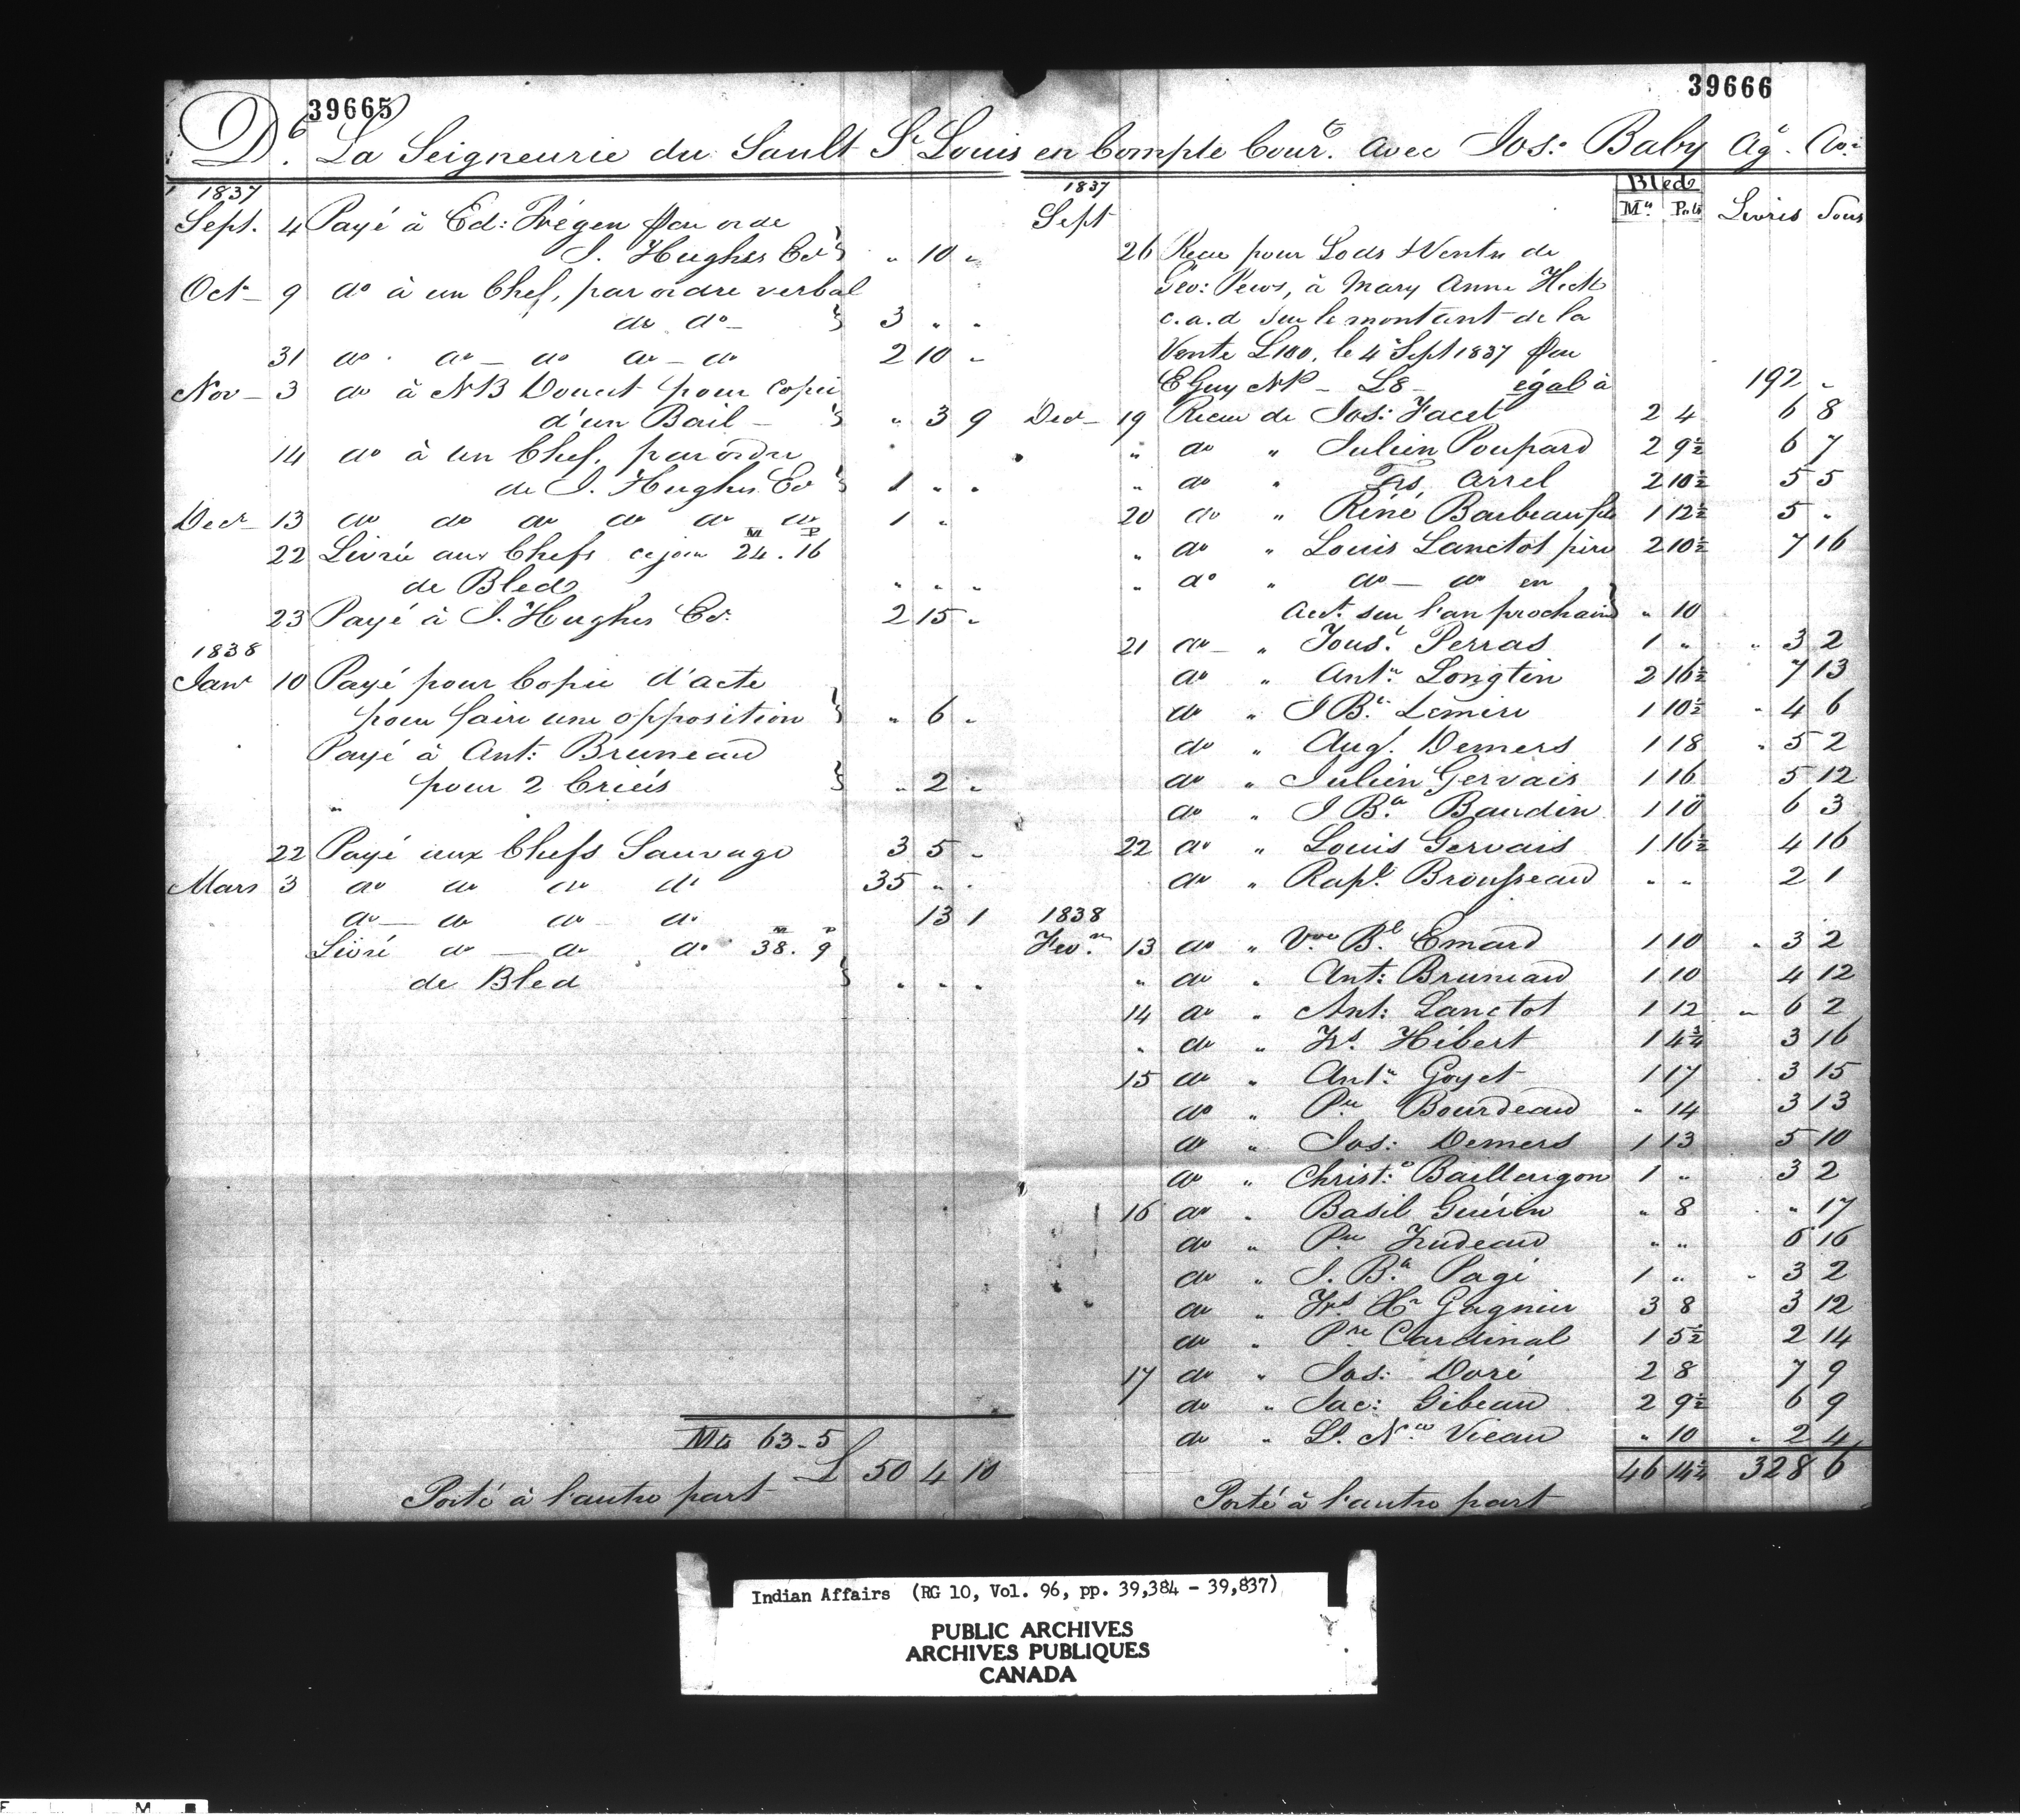 39665
39666
Dt. La Seigneurie du Sault St Louis en Compte Cour.t avec Jos: Baby Agt.
1837
Sept. 4 Payé à Ed: Trégen par ordre
J. Hughes " 10 "
Oct 9 do à un Chef, par ordre verbal
de do 3 " "
31 do do do do do 2 10 "
Nov 3 do à NB Doucet pour Copie
d'un Bail " 3 9
14 do à un Chef, par ordre
de J. Hughes 1 " "
Decr 13 do do do do do do 1 "
M P
22 Livrée aux Chefs ce jour 24 . 16
de Bled " " "
23 Payé à J. Hughes 2 15 "
1838
Janr 10 Payé pour Copie d'acte
pour faire une opposition " 6 "
Payé à Ant: Bruneau
" pour 2 Criées " 2 "
22 Payé aux Chefs Sauvage 3 5 "
Mars 3 do do do do 35 " "
do do do do 13 1
M P
Livré do do do 38 . 9
de Bled " " "
Mts 63 - 5
L 50 4 10
Porté à l'autre part
1837
Sept
Bled
Mts Pots Livres Sous
26 Recu pour Lods & Ventes de
Geo: Pews, à Mary Anne Heck
c.a.d sur le montant de la
Vente L100, le 4 Sept 1837 par
E Guy NP - L8 - égal à 192 "
Decr 19 Recu de Jos: Facet 2 4 6 8
" do " Julien Poupard 2 9½ 6 7
" do " Frs Arrel 2 10½ 5 5
20 do " Réné Barbeau fils 1 12½ 5 "
" do " Louis Lanctot père 2 10½ 7 16
" do " do do en
Act. sur l'an prochain " 10
21 do " Toust Perras 1 " " 3 2
do " Ante Longtin 2 16½ 7 13
do " J Bte Lemire 1 10½ " 4 6
do " Augt. Demers 1 18 " 5 2
do " Julien Gervais 1 16 5 12
do " J Bte Baudin 1 10 6 3
22 do " Louis Gervais 1 16½ 4 16
do " Rapl. Brousseau " " 2 1
1838
Fevr 13 do " Vve Bl Emard 1 10 " 3 2
" do " Ant: Bruneau 1 10 4 12
14 do " Ant: Lanctot 1 12 " 6 2
" do " Frs. Hébert 1 4¾ 3 16
15 do " Ante Goyet 1 17 3 15
do " Pre Bourdeau " 14 3 13
do " Jos: Demers 1 13 5 10
do " Christ: Baillargeon 1 " 3 2
16 do " Basil Guérin " 8 " 17
do " Pre Trudeau " " 6 16
do " J. Bte Pagé 1 " " 3 2
do " Frs Xr Gagnier 3 8 3 12
do " Pre Cardinal 1 5½ 2 14
17 do " Jos: Doré 2 8 7 9
do " Jac: Gibeau 2 9½ 6 9
do " Ls. Nas Vieau " 10 " 2 4
46 14¼ 328 6
Porté à l'autre part
Indian Affairs (RG 10, Vol. 96, pp. 39,384 - 39,837)
PUBLIC ARCHIVES
ARCHIVES PUBLIQUES
CANADA